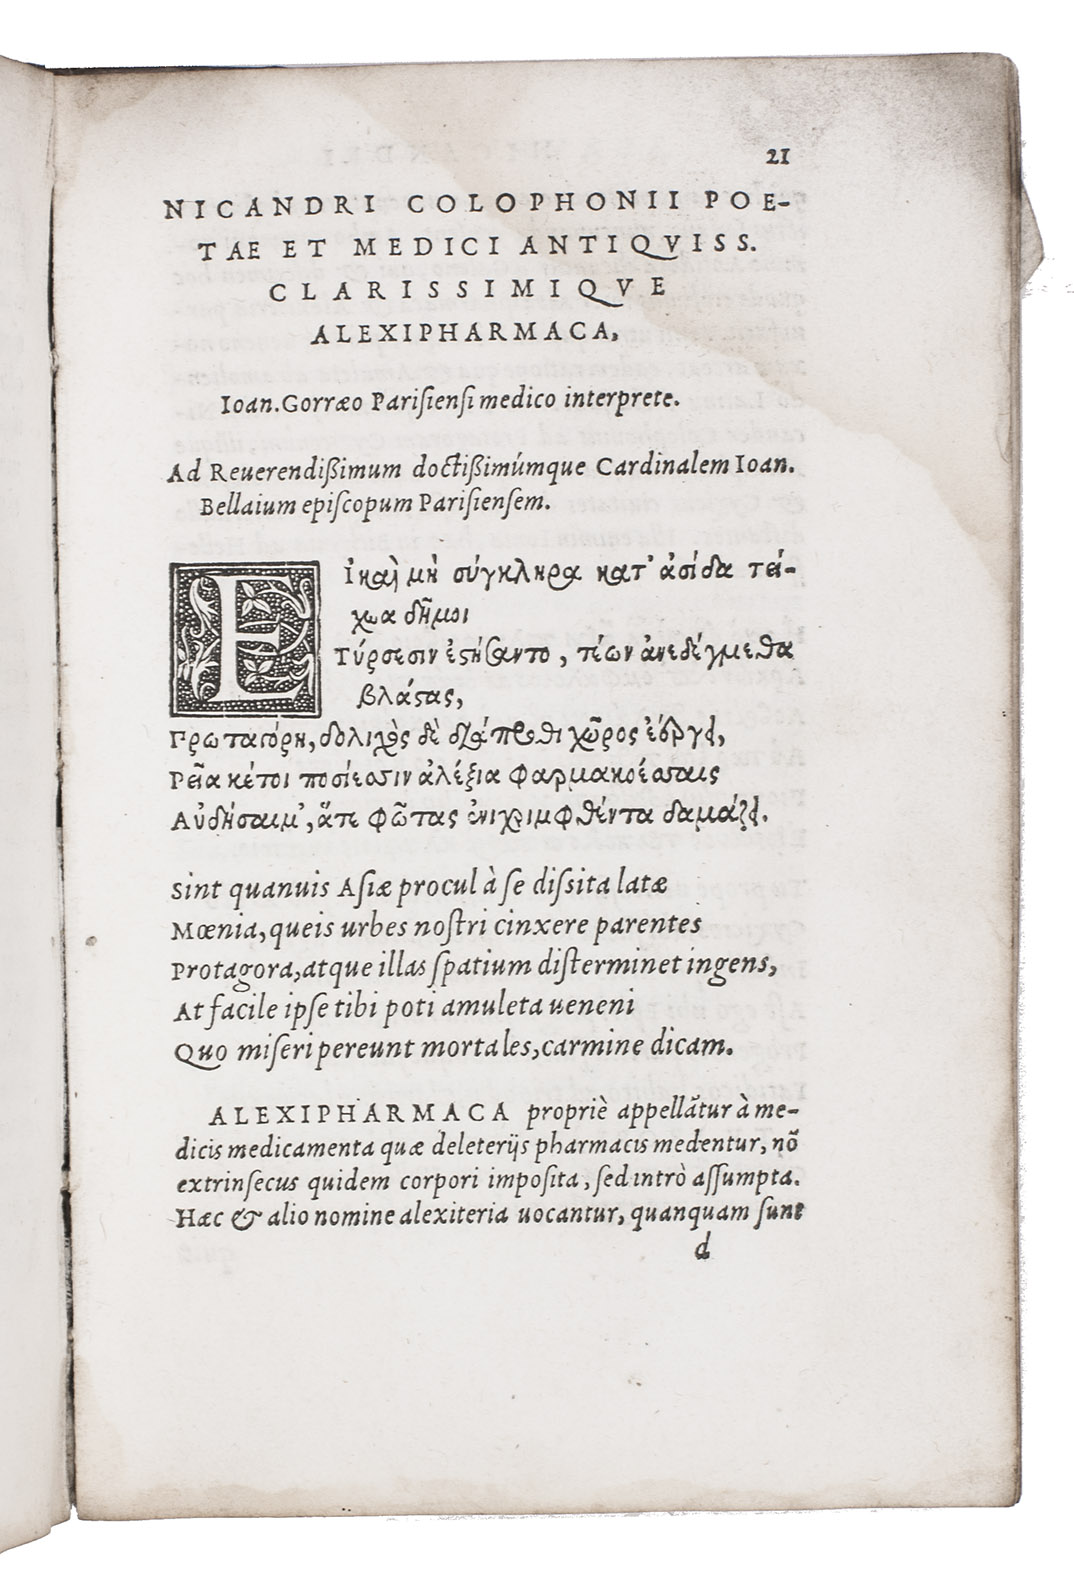 21
NICANDRI COLOPHONII POE-
TAE ET MEDICI ANTIQVISS.
CLARISSIMIQVE
ALEXIPHARMACA,
Ioan. Gorræo Pariſienſi medico interprete.
Ad Reuerendißimum doctißimúmque Cardinalem Ioan.
Bellaium epiſcopum Pariſienſem.
Εἰ καὶ μὴ σύγκληρα κατ' ἀσίδα τεί-
χεα δῆμοι
Τύρσεσιν ἐστήσαντο, τέων ἀνεδέγμεθα
βλάστας,
Πρωταγόρη, δολιχὸς δὲ διάπροθι χῶρος ἐέργει,
Ρεῖα κέ τοι ποσίεσσιν ἀλέξια φαρμακοέσσαις
Αὐδήσαιμ', ἅτε φῶτας ἐνιχριμφθέντα δαμάζει.
Sint quanuis Aſiæ procul à ſe diſsita latæ
Mœnia, queis urbes noſtri cinxere parentes
Protagora, atque illas ſpatium diſterminet ingens,
At facile ipſe tibi poti amuleta ueneni
Quo miſeri pereunt mortales, carmine dicam.
ALEXIPHARMACA propriè appellãtur à me-
dicis medicamenta quæ deleterijs pharmacis medentur, nõ
extrinſecus quidem corpori impoſita, ſed intrò aſſumpta.
Hæc & alio nomine alexiteria uocantur, quanquam ſunt
d